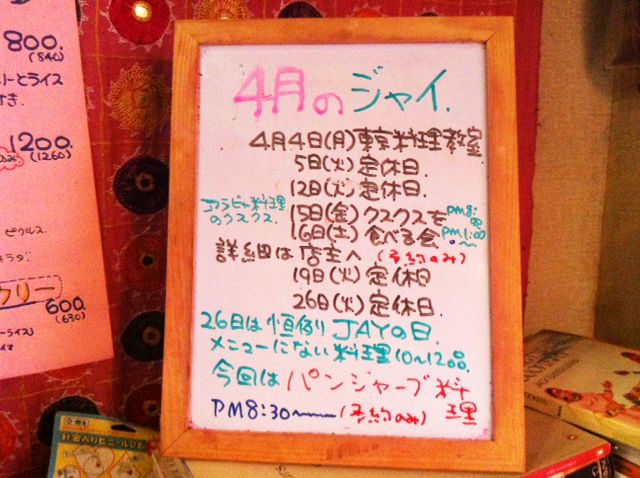 800.
(840)
リーとライス
すき.
1200.
のみ
(1260)
ピクルス
サラダ:
クリー
600.
(630)
ーライス)
イス
4月のジャイ.
4月4日(月)東京料理教室.
5日(火)定休日.
12日(火)定休日.
アラビヤ料理
のクスクス.
15日(金)クスクスを PM8:00
16日(土)食べる会. PM1:00〜
詳細は店主へ (予約のみ)
19日(火)定休日
26日(火)定休日.
26日は恒例JAYの日.
メニューにない料理10〜12品.
今回はパンジャーブ料理
PM8:30〜(予約のみ)
針金入りビニールひも